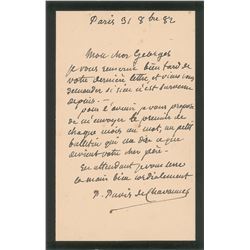 Paris 31 8bre 82
Mon cher Georges
je vous remercie bien tard de
votre dernière lettre et viens vous
demander si rien n'est survenu
depuis. —
pour l'avenir je vous propose
de m'envoyer le premier de
chaque mois un mot, un petit
bulletin qui me dise ce que
devient votre cher père.
En attendant je vous serre
la main bien cordialement
P. Puvis de Chavannes